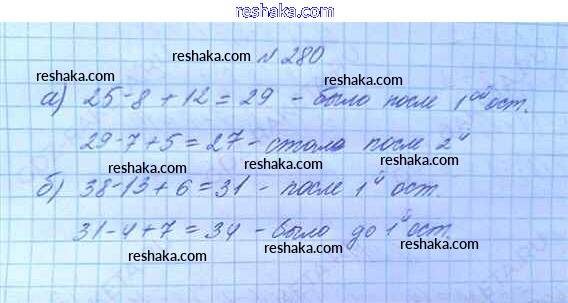 reshaka.com
№ 280
reshaka.com
reshaka.com
reshaka.com
reshaka.com
а) 25-8+12=29 - было после 1ой ост.
29-7+5=27 - стало после 2й
reshaka.com
reshaka.com
б) 38-13+6=31 - после 1й ост.
reshaka.com
reshaka.com
31-4+7=34 - было до 1й ост.
reshaka.com
reshaka.com